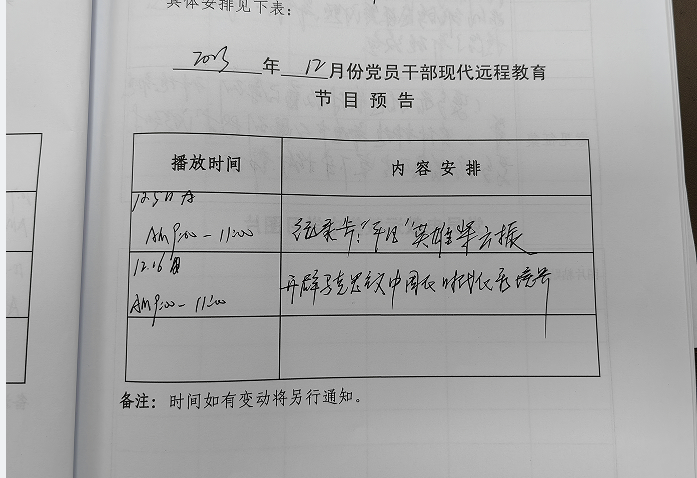 具体安排见下表：
2023 年 12 月份党员干部现代远程教育
节目预告
播放时间 内容安排
12.5日
AM9:00-11:00 纪录片："平民"英雄 云振
12.16日
AM9:00-11:00 开辟马克思主义中国化时代化新境界
备注：时间如有变动将另行通知。